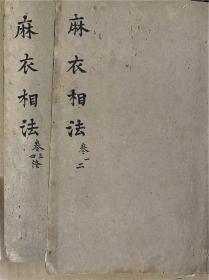 麻衣相法
卷一二
麻衣相法
卷三四